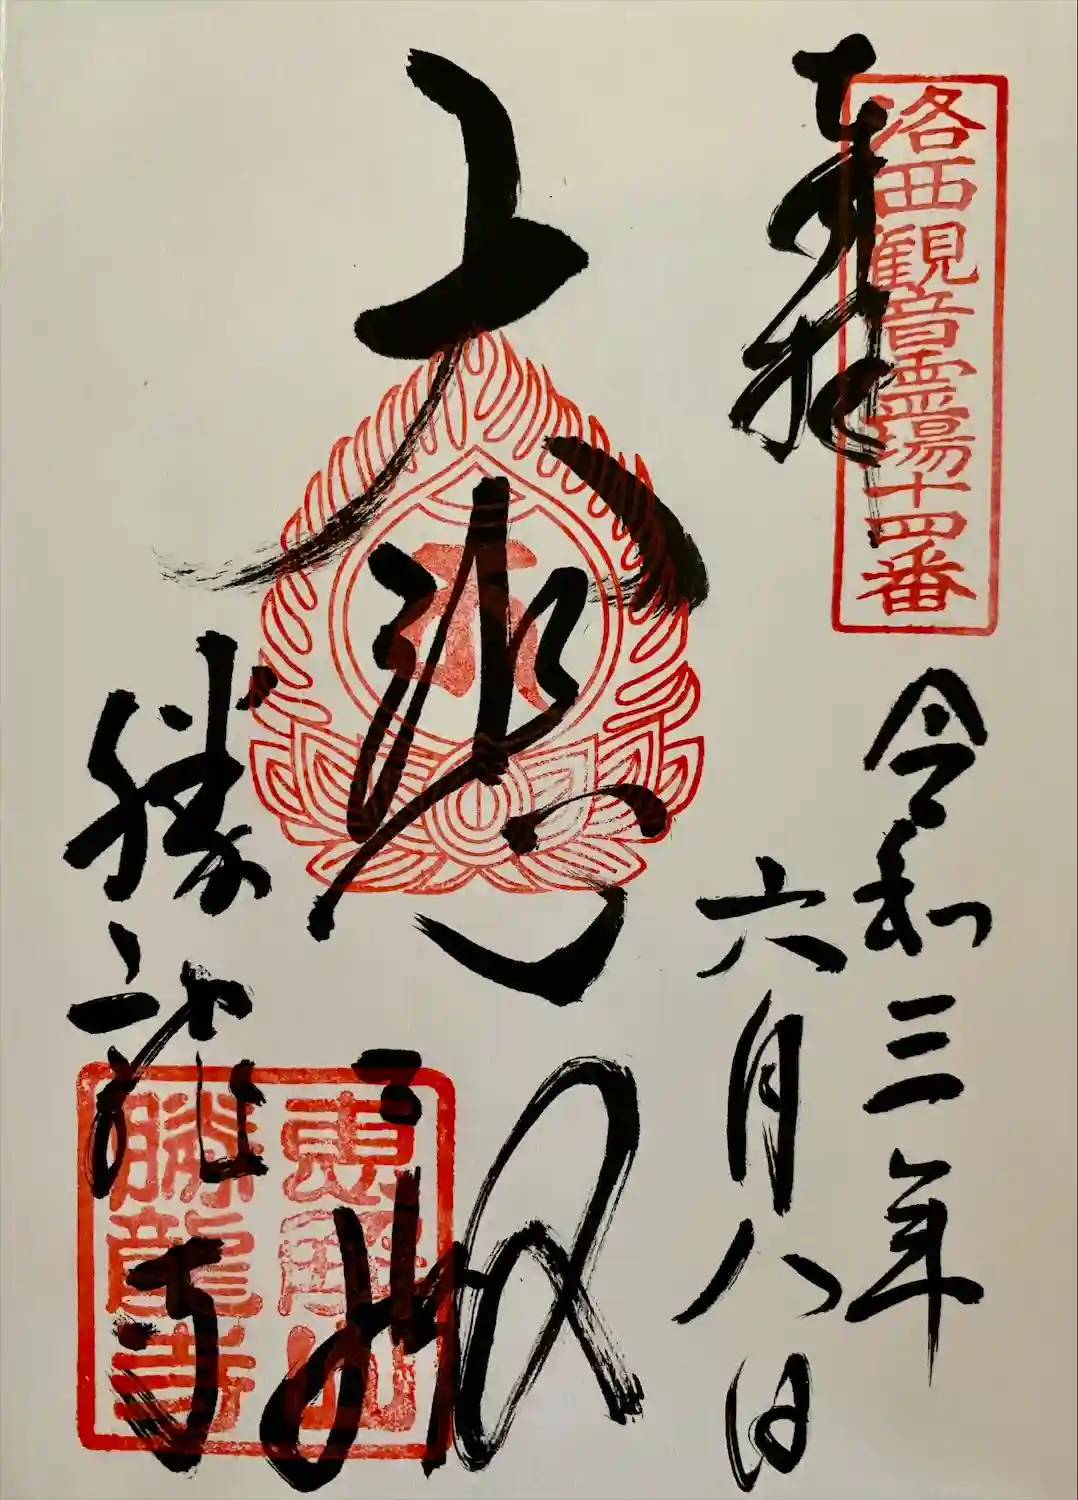 洛西観音霊場十四番
奉拝
令和三年
六月八日
大悲殿
勝龍寺
恵解山
勝龍寺